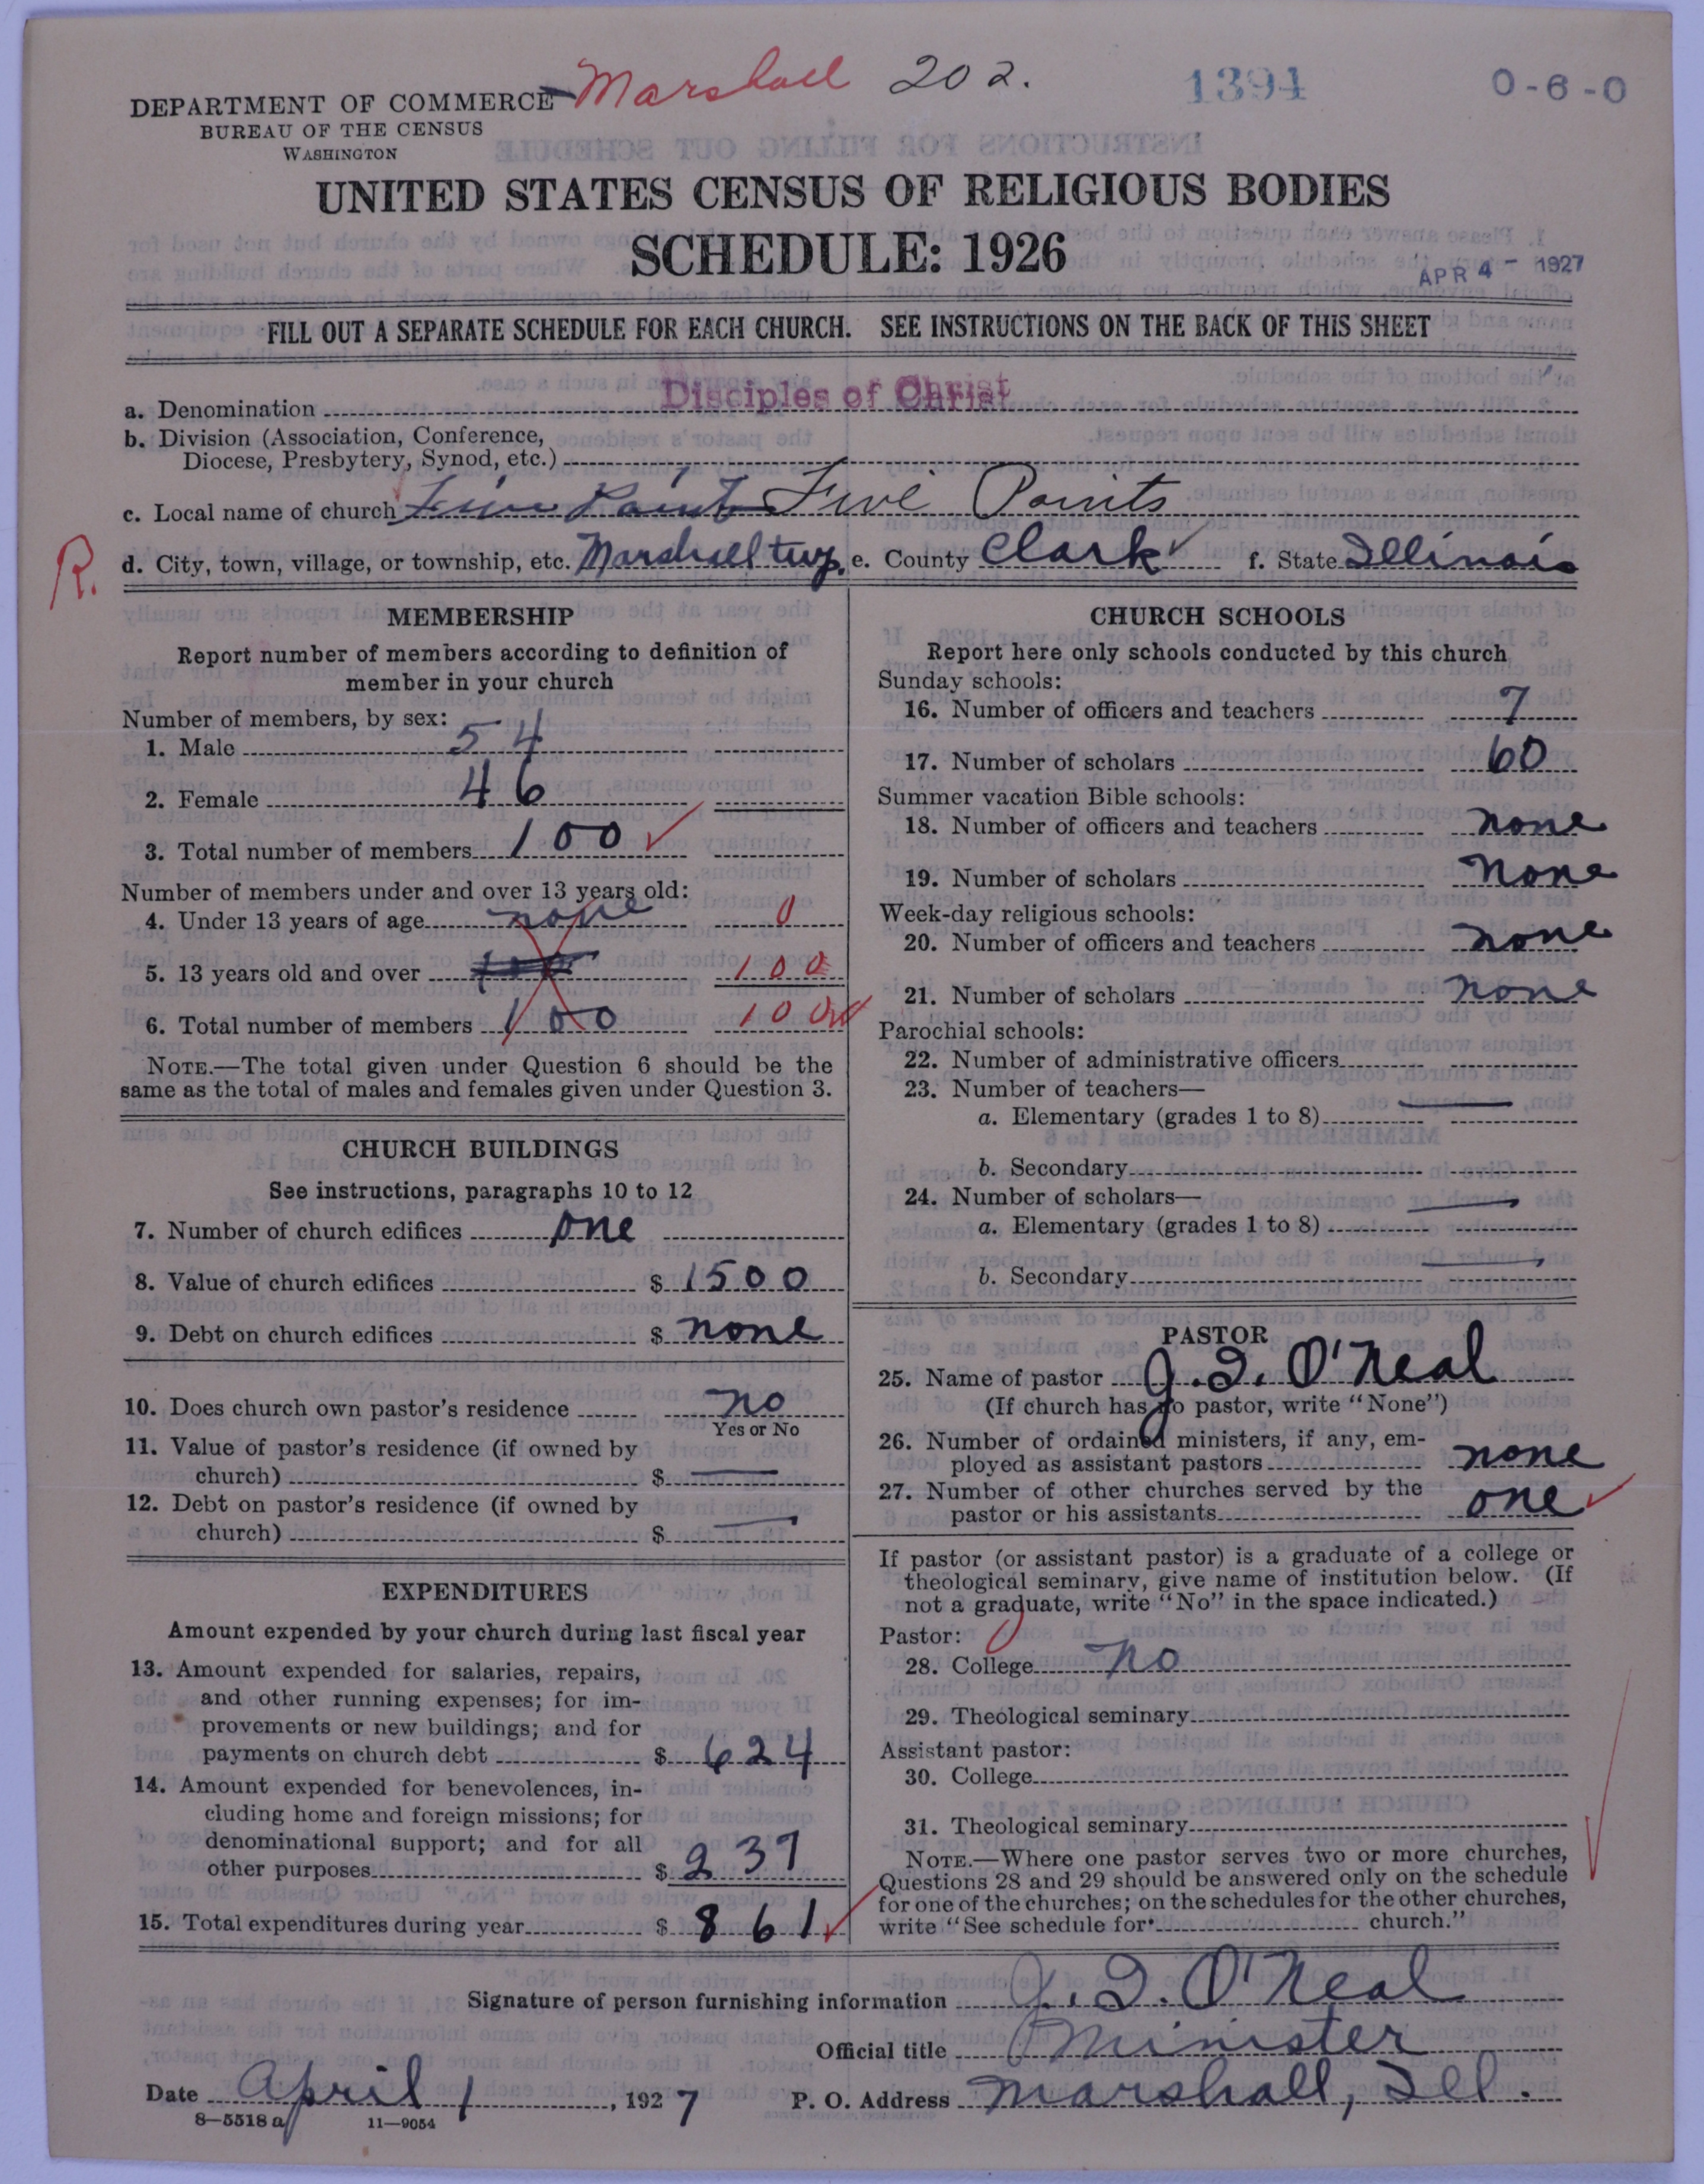 Marshall 202. 1394 0-6-0
DEPARTMENT OF COMMERCE
BUREAU OF THE CENSUS
WASHINGTON
UNITED STATES CENSUS OF RELIGIOUS BODIES
SCHEDULE: 1926
APR 4 - 1927
FILL OUT A SEPARATE SCHEDULE FOR EACH CHURCH. SEE INSTRUCTIONS ON THE BACK OF THIS SHEET
a. Denomination Disciples of Christ
b. Division (Association, Conference,
Diocese, Presbytery, Synod, etc.)
c. Local name of church Five Points Five Points
R. d. City, town, village, or township, etc. Marshall twp. e. County Clark f. State Illinois
MEMBERSHIP
Report number of members according to definition of
member in your church
Number of members, by sex:
1. Male 54
2. Female 46
3. Total number of members 100
Number of members under and over 13 years old:
4. Under 13 years of age none 0
5. 13 years old and over 100 100
6. Total number of members 100 100
NOTE.—The total given under Question 6 should be the
same as the total of males and females given under Question 3.
CHURCH BUILDINGS
See instructions, paragraphs 10 to 12
7. Number of church edifices one
8. Value of church edifices $ 1500
9. Debt on church edifices $ none
10. Does church own pastor's residence no
Yes or No
11. Value of pastor's residence (if owned by
church) $ —
12. Debt on pastor's residence (if owned by
church) $ —
EXPENDITURES
Amount expended by your church during last fiscal year
13. Amount expended for salaries, repairs,
and other running expenses; for im-
provements or new buildings; and for
payments on church debt $ 624
14. Amount expended for benevolences, in-
cluding home and foreign missions; for
denominational support; and for all
other purposes $ 237
15. Total expenditures during year $ 861
CHURCH SCHOOLS
Report here only schools conducted by this church
Sunday schools:
16. Number of officers and teachers 7
17. Number of scholars 60
Summer vacation Bible schools:
18. Number of officers and teachers none
19. Number of scholars none
Week-day religious schools:
20. Number of officers and teachers none
21. Number of scholars none
Parochial schools:
22. Number of administrative officers
23. Number of teachers—
a. Elementary (grades 1 to 8) —
b. Secondary
24. Number of scholars—
a. Elementary (grades 1 to 8) —
b. Secondary —
PASTOR
25. Name of pastor J. I. O'Neal
(If church has no pastor, write "None")
26. Number of ordained ministers, if any, em-
ployed as assistant pastors none
27. Number of other churches served by the
pastor or his assistants one
If pastor (or assistant pastor) is a graduate of a college or
theological seminary, give name of institution below. (If
not a graduate, write "No" in the space indicated.)
Pastor:
28. College no
29. Theological seminary
Assistant pastor:
30. College
31. Theological seminary
NOTE.—Where one pastor serves two or more churches,
Questions 28 and 29 should be answered only on the schedule
for one of the churches; on the schedules for the other churches,
write "See schedule for church."
Signature of person furnishing information J. I. O'Neal
Official title Minister
Date April 1, 1927 P. O. Address Marshall, Ill.
8—5518 a 11—9054